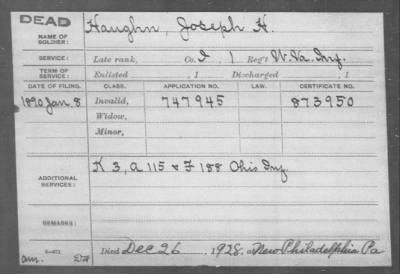 DEAD
NAME OF SOLDIER: Haughn, Joseph H.
SERVICE: Late rank, Co. I 1 Reg't W. Va. Inf.
TERM OF SERVICE: Enlisted , 1 Discharged , 1
DATE OF FILING. CLASS. APPLICATION NO. LAW. CERTIFICATE NO.
1890 Jan. 8 Invalid, 747945 873950
Widow,
Minor,
ADDITIONAL SERVICES: K 3, A 115 & F 188 Ohio Inf.
REMARKS:
Died Dec 26, 1928. at New Philadelphia Pa